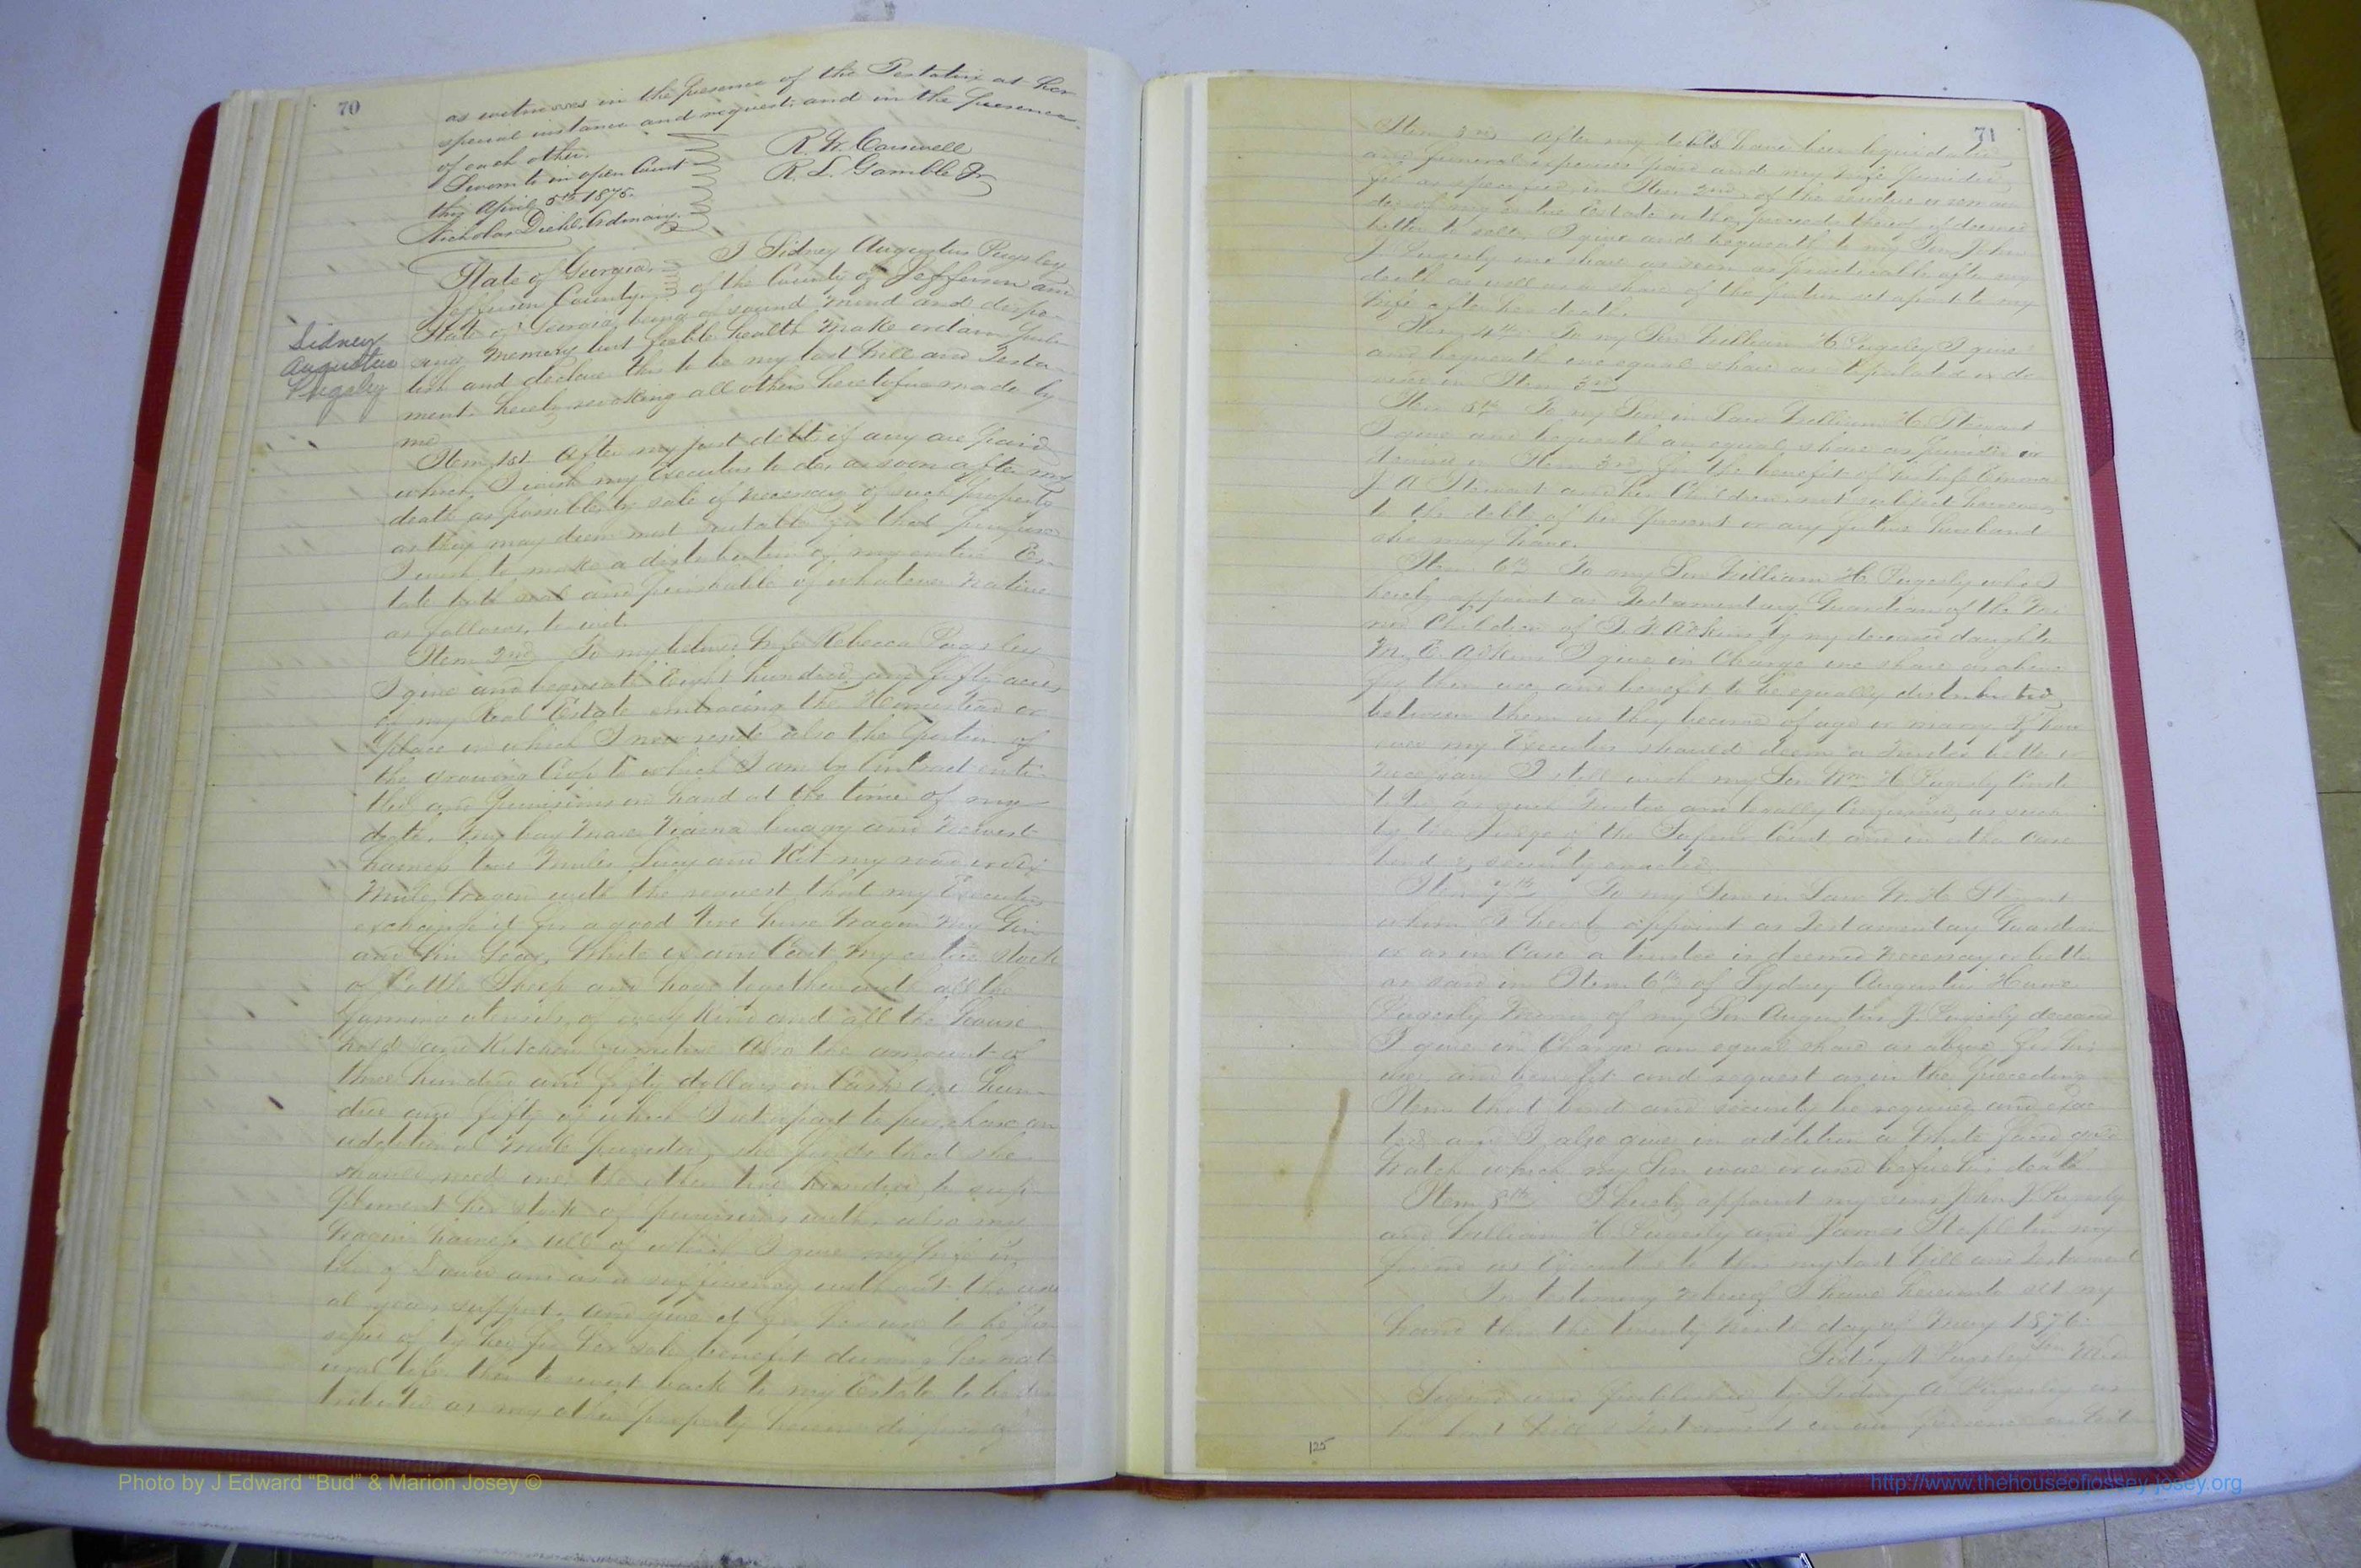 70
as witnesses in the presence of the Testatrix at her
special instance and request and in the presence
of each other.
Sworn to in open Court
this April 5th 1875.
Nicholas Diehl Ordinary.
R. W. Carswell
R. L. Gamble Jr
State of Georgia
Jefferson County
I Sidney Augustus Pugsley
of the County of Jefferson and
State of Georgia being of sound mind and dispo-
sing memory but feeble health make ordain pub-
lish and declare this to be my last Will and Testa-
ment hereby revoking all others heretofore made by
me
Sidney
Augustus
Pugsley
Item 1st After my just debts if any are paid
which I wish my Executors to do, as soon after my
death as possible by sale if necessary of such property
as they may deem most suitable for that purpose
I wish to make a distribution of my entire Es-
tate both real and perishable of whatever nature
as follows, to wit.
Item 2nd To my beloved wife Rebecca Pugsley
I give and bequeath Eight hundred and fifty acres
of my Real Estate embracing the Homestead or
place on which I now reside also the portion of
the growing Crop to which I am by Contract enti-
tled and provisions on hand at the time of my
death. My bay mare buggy and
harness two Mules Lucy and Kit my
Mule wagon with the request that my Executors
exchange it for a good two horse wagon My Gin
and Gin Gear, White ox and Cart My entire stock
of Cattle Sheep and hogs together with all the
farming utensils of every kind and all the house
hold and kitchen furniture Also the amount of
three hundred and fifty dollars in Cash one hun-
dred and fifty of which I set apart to purchase an
additional mule provided she finds that she
should need one the other two hundred to sup-
plement her stock of provisions with, also my
wagon harness all of which I give my wife in
lieu of Dower and as a sufficiency without the usu
al years support. and give it for her use to be
by her for her sole benefit during her nat-
ural life then to revert back to my Estate to be dis
tributed as my other property herein
71
Item 3rd After my debts have been liquidated
and funeral expenses paid and my wife provided
for as specified in Item 2nd, of the residue or remain
der of my entire Estate or the proceeds thereof if deemed
better to sell, I give and bequeath to my Son John
J. Pugesly one share as soon as practicable after my
death as well as a share of the portion set apart to my
wife after her death.
Item 4th To my Son William H Pugesly I give
and bequeath one equal share as stipulated or de
vised in Item 3rd
Item 5th To my Son in Law William H Stewart
I give and bequeath an equal share as provided or
devised in Item 3rd for the benefit of his wife Emma
J A Stewart and her Children not subject however
to the debts of her present or any future husband
she may have.
Item 6th To my Son William H Pugesly who I
hereby appoint as Testamentary Guardian of the Mi
nor Children of Adkins by my deceased daughter
M. E. Adkins I give in Charge one share as above
for their use and benefit to be equally distributed
between them as they become of age or marry. If how
ever my Executors should deem a Trustee better or
necessary I still wish my Son Wm H Pugesly
to be as such Trustee and legally as such
by the Judge of the Superior Court and in either case
bond & security
Item 7th To my Son in Law W. H Stewart
whom I hereby appoint as Testamentary Guardian
or as in Case a trustee is deemed necessary or better
as said in Item 6th of Sydney Augustus
Pugesly of my Son Augustus J. Pugsely deceased
I give in Charge an equal share as above for his
use and benefit and request as in the preceding
Item that bond and security be required and exac
ted and I also give in addition a white faced gold
Watch which my Son before his death
Item 8th I hereby appoint my sons John J. Pugesly
and William H. Pugesly and James Stapleton my
friend as Executors to this my last Will and Testament
In testimony whereof I have hereunto set my
hand this the twenty ninth day of May 1876.
Sidney A Pugesley
Signed and published by Sidney A Pugesley as
his last Will & Testament in our presence
125
Photo by J Edward "Bud" & Marion Josey ©
http://www.thehouseofjossey-josey.org